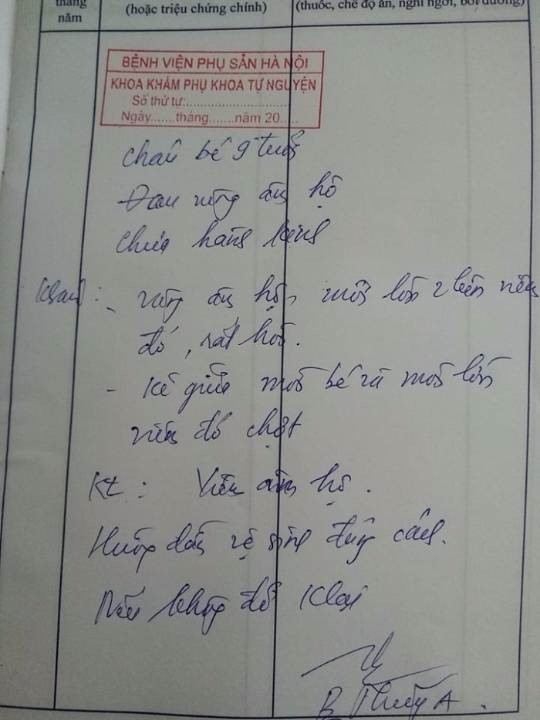 tháng năm
(hoặc triệu chứng chính)
(thuốc, chế độ ăn, nghỉ ngơi, bồi dưỡng)
BỆNH VIỆN PHỤ SẢN HÀ NỘI
KHOA KHÁM PHỤ KHOA TỰ NGUYỆN
Số thứ tự:
Ngày.......tháng.......năm 20.....
Cháu bé 9 tuổi
Đau vùng âm hộ
Chưa hành kinh
Khám: - vùng âm hộ, môi lớn 2 bên viêm
đỏ, sát hơn.
- Kẽ giữa môi bé và môi lớn
viêm đỏ chợt
KL: Viêm âm hộ.
Hướng dẫn vệ sinh đúng cách.
Nếu không đỡ K lại
B Thủy A.